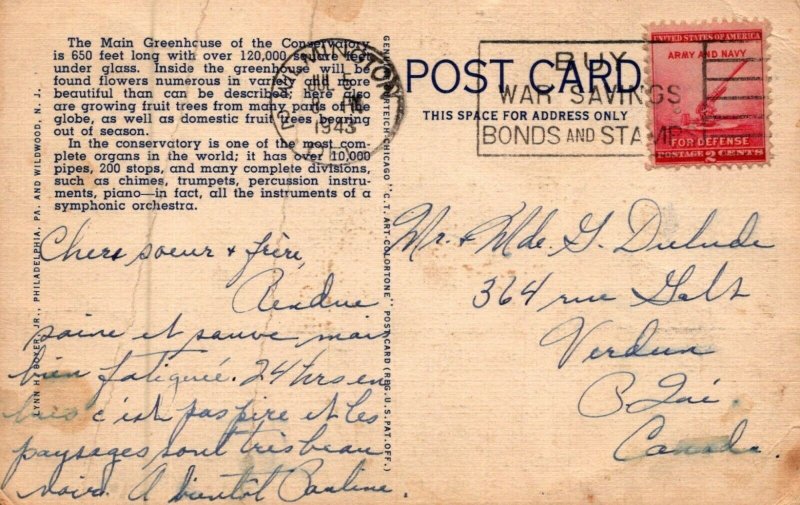 The Main Greenhouse of the Conservatory
is 650 feet long with over 120,000 square feet
under glass. Inside the greenhouse will be
found flowers numerous in variety and more
beautiful than can be described; here also
are growing fruit trees from many parts of the
globe, as well as domestic fruit trees bearing
out of season.
In the conservatory is one of the most com-
plete organs in the world; it has over 10,000
pipes, 200 stops, and many complete divisions,
such as chimes, trumpets, percussion instru-
ments, piano—in fact, all the instruments of a
symphonic orchestra.
Chers soeur + frère,
Rendue
saine et sauve mais
bien fatiguée. 24 hrs en
c'est pas pire et les
paysages sont très beau
A bientôt Pauline.
LYNN H. BOYER, JR., PHILADELPHIA, PA. AND WILDWOOD, N. J.
CHICAGO "C.T. ART-COLORTONE" POSTCARD (REG. U.S. PAT. OFF.)
1943
POST CARD
THIS SPACE FOR ADDRESS ONLY
BUY
WAR SAVINGS
BONDS AND STAMPS
UNITED STATES OF AMERICA
ARMY AND NAVY
FOR DEFENSE
POSTAGE 2 CENTS
Mr. + Mde. G. Dulude
364 rue Galt
Verdun
P. Qué.
Canada.